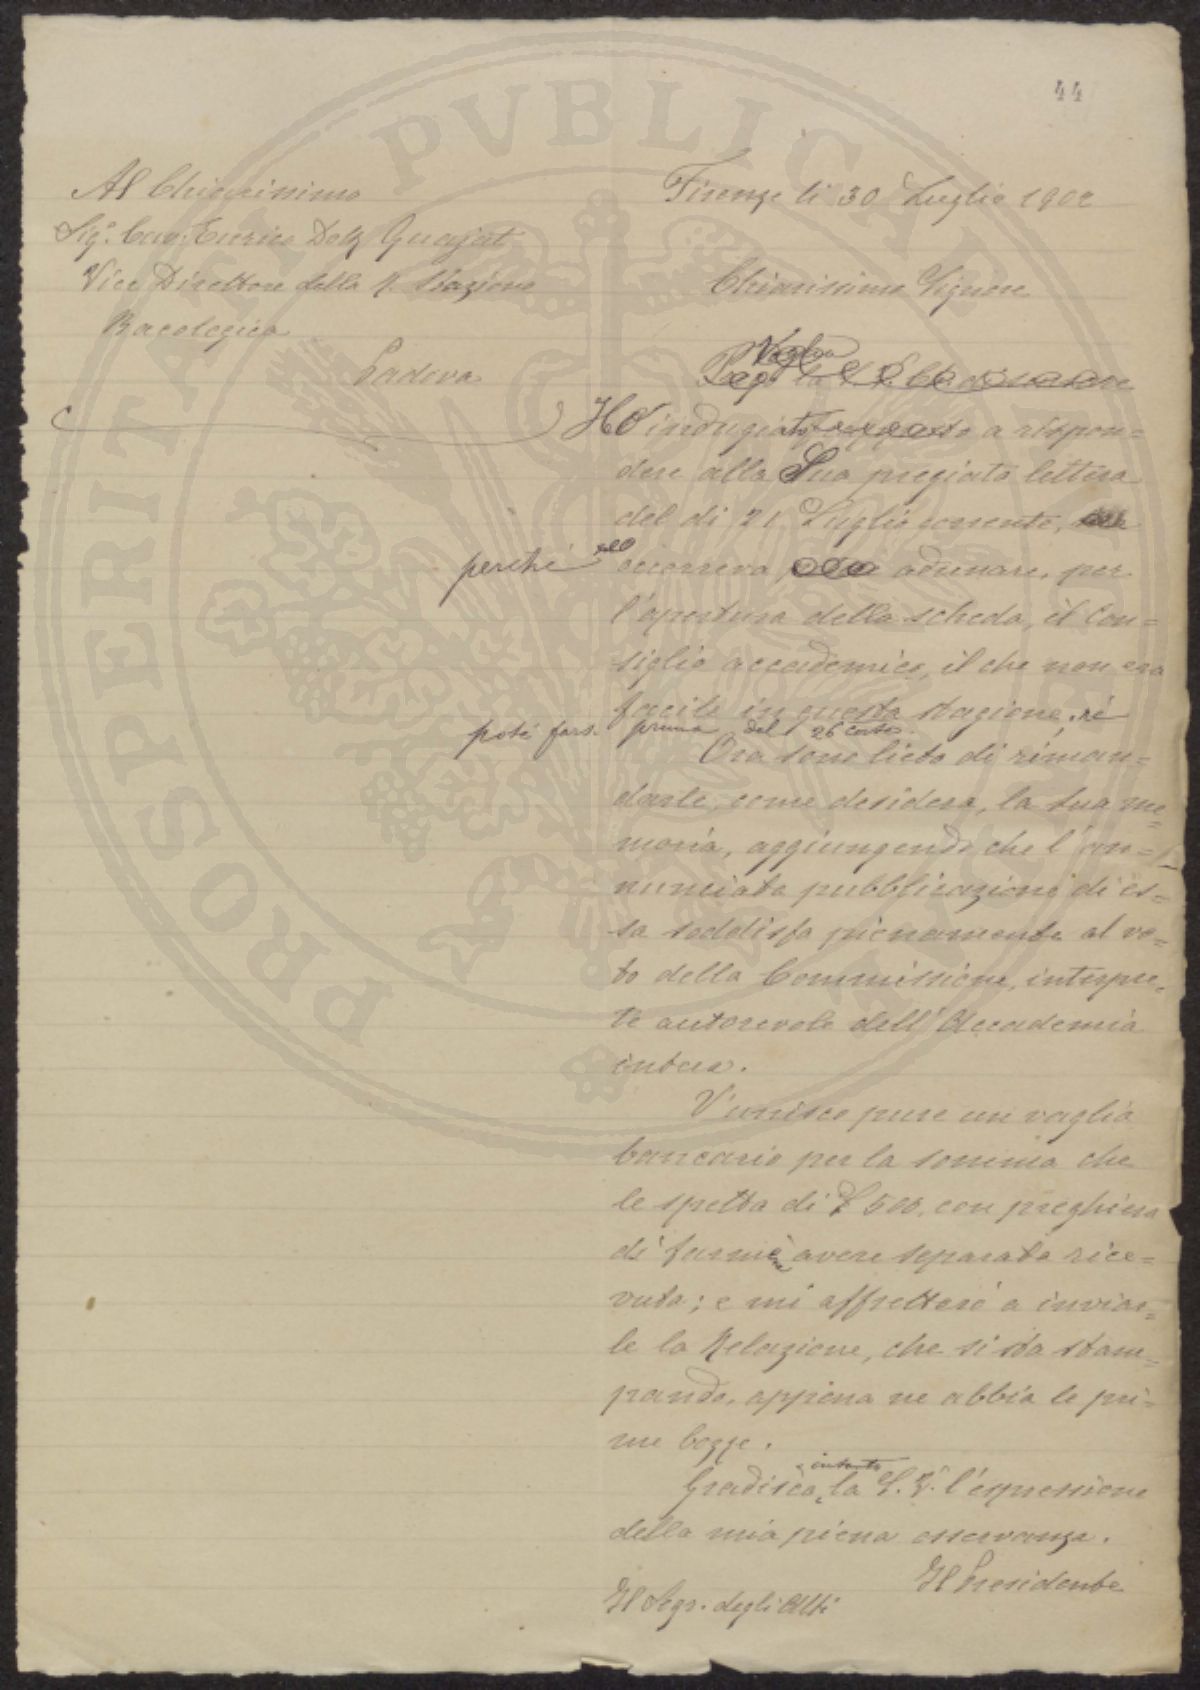 44
Al Chiarissimo
Sigr. Cav. Enrico Dott Quajat
Vice Direttore della R. Stazione
Bacologica
Padova
Firenze li 30 Luglio 1902
Chiarissimo Signore
Voglia
la S. V. Ch.
Ho indugiato a rispon=
dere alla Sua pregiata lettera
del di 21 Luglio corrente,
perché occorreva adunare, per
l'apertura della scheda, il Con=
siglio accademico, il che non era
facile in questa stagione, né
poté farsi prima del 26 corrte.
Ora sono lieto di riman=
darle, come desidera, la sua me=
moria, aggiungendo che l'an=
nunciata pubblicazione di es=
sa soddisfa pienamente al vo=
to della Commissione, interpre=
te autorevole dell'Accademia
intera.
V'unisco pure un vaglia
bancario per la somma che
le spetta di £ 500, con preghiera
di farmene avere separata rice=
vuta; e mi affretterò a inviar=
le la Relazione, che si sta stam=
pando, appena ne abbia le pri=
me bozze.
intanto
Gradisca la S. V. l'espressione
della mia piena osservanza.
Il Presidente
Il Segr. degli Atti
PROSPERITATI PVBLICAE